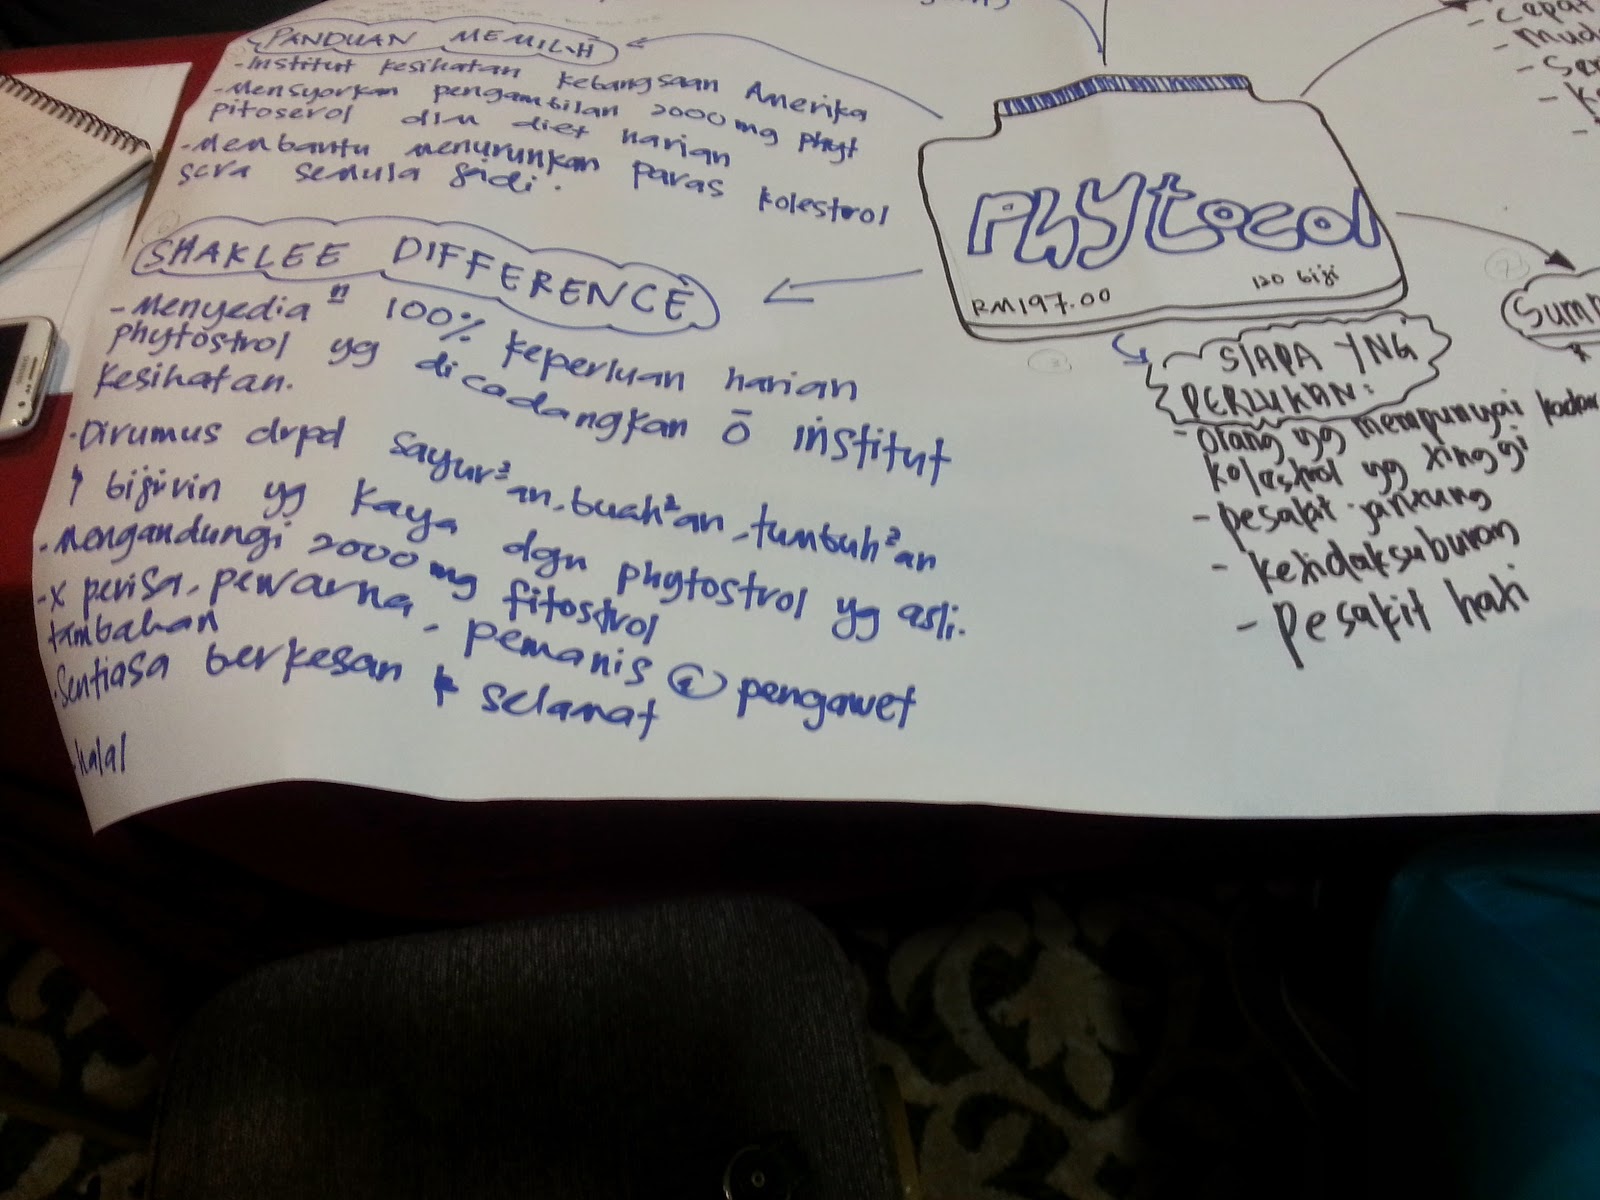 PANDUAN MEMILIH
- Institut kesihatan kebangsaan Amerika
- Mensyorkan pengambilan 2000 mg phyt
pitoserol dlm diet harian
- Membantu menurunkan paras kolestrol
scra semula jadi.
SHAKLEE DIFFERENCE
- Menyedia n 100% keperluan harian
phytostrol yg dicadangkan ō institut
kesihatan.
- Dirumus drpd sayur²an, buah²an, tumbuh²an
bijirin yg kaya dgn phytostrol yg asli.
- Mengandungi 2000 mg fitostrol
- x perisa, pewarna, pemanis @ pengawet
tambahan
- Sentiasa berkesan & selamat
- halal
Phytocol
RM197.00
120 biji
SIAPA YNG
PERLUKAN:
- Orang yg mempunyai kadar
kolastrol yg tinggi
- pesakit jantung
- ketidaksuburan
- pesakit hati
- cepat
- Mud
- Ser
- K
Summ